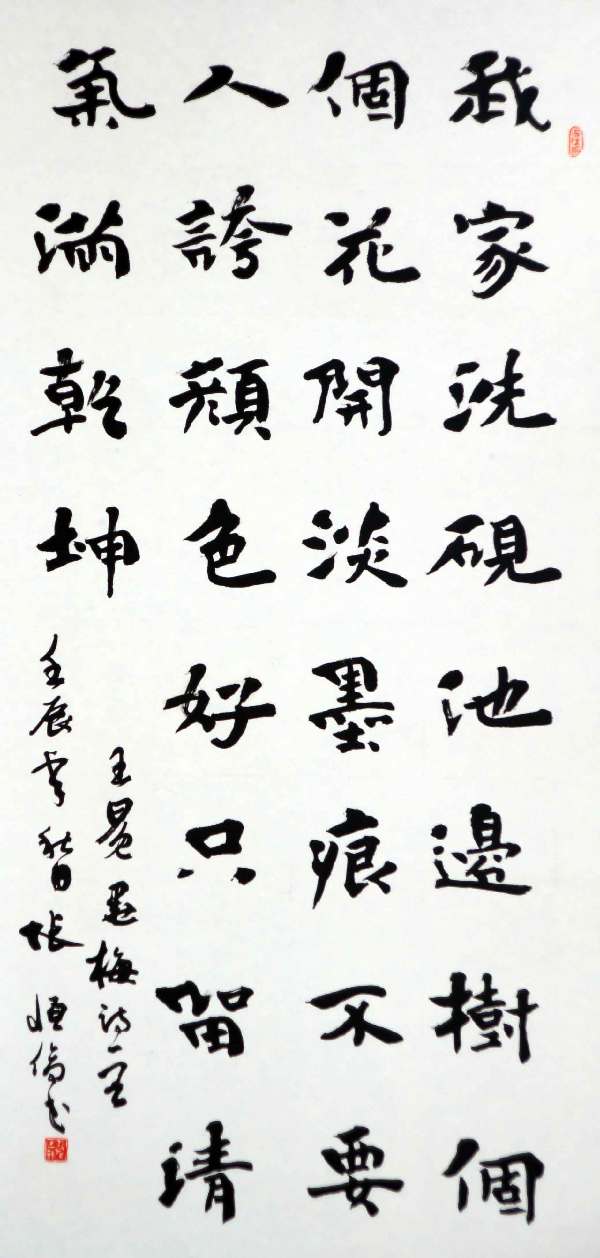 我家洗硯池邊樹個
個花開淡墨痕不要
人誇顔色好只留清
氣滿乾坤
王冕墨梅詩一首
壬辰年秋日張